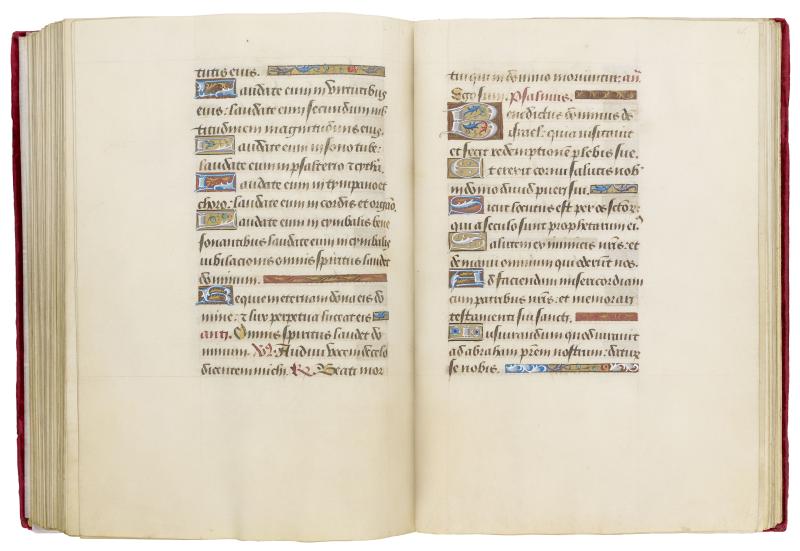 tutis eius.
Laudate eum in virtutibus
eius: laudate eum secundum mul
titudinem magnitudinis eius.
Laudate eum in sono tube:
laudate eum in psalterio ⁊ cytha.
Laudate eum in tympano et
choro: laudate eum in cordis et organo.
Laudate eum in cymbalis bene
sonantibus laudate eum in cymbalis
iubilacionis omnis spiritus laudet
dominum.
Requiem eternam dona eis do
mine: ⁊ lux perpetua luceat eis
anti. Omnis spiritus laudet do
minum. Audivi vocem de celo
dicentem michi. Beati mor
tui qui in domino moriuntur. an.
Ego sum. Psalmus.
Benedictus dominus de
israel: quia visitavit
et fecit redemptionem plebis sue.
Et erexit cornu salutis nob
in domo david pueri sui.
Sicut locutus est per os sctor:
qui a seculo sunt prophetarum ei
Salutem ex inimicis nris: et
de manu omnium qui oderunt nos.
Ad faciendum misericordiam
cum patribus nris: et memorari
testamenti sui sancti.
Iusiurandum quod iuravit
ad abraham prem nostrum: datur
se nobis.